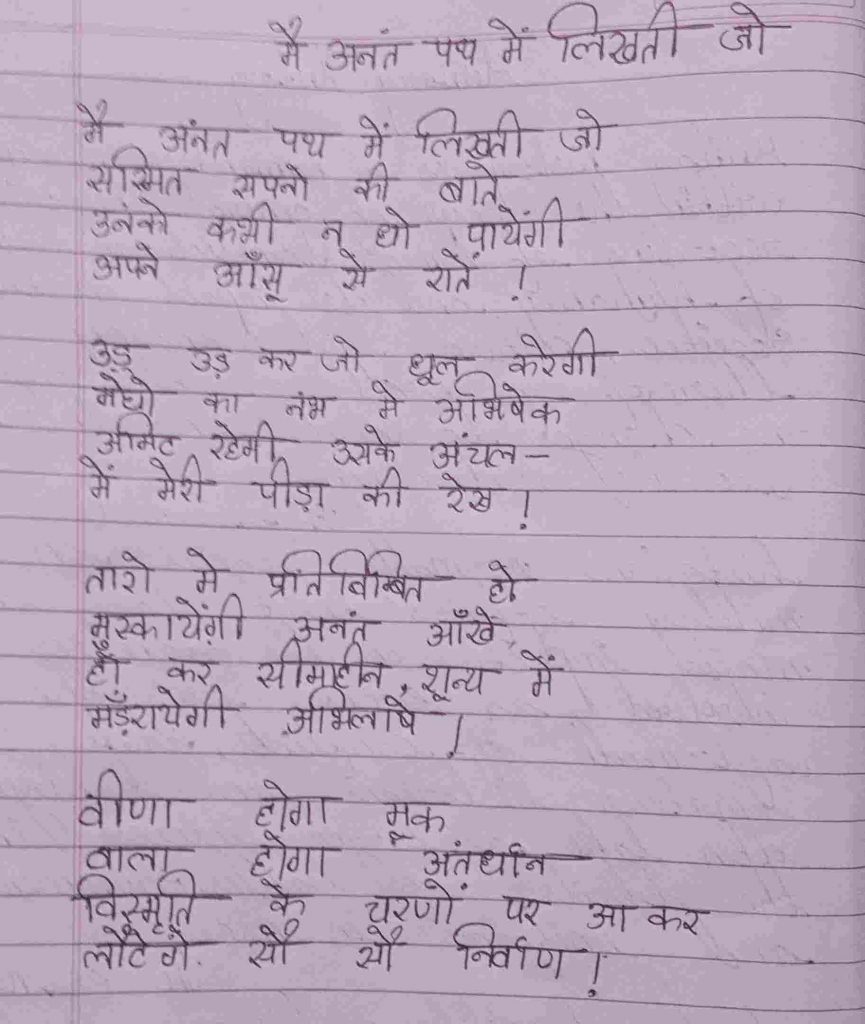 मै अनंत पथ में लिखती जो
मै अंनत पथ में लिखती जो
सस्मित सपनो की बाते
उनको कभी न धो पायेंगी
अपने आँसू से रातें !
उड़ उड़ कर जो धूल करेगी
मेघो का नभ मे अभिषेक
अमिट रहेगी उसके अंचल –
में मेरी पीड़ा की रेख !
तारो मे प्रतिबिम्बित हो
मुस्कायेंगी अनंत आँखें
हो कर सीमाहीन, शून्य में
मँड़रायेगी अभिलाषे !
वीणा होगा मूक
वाला होगा अंतर्धान
विस्मृति के चरणों पर आ कर
लौटेगे सौ सौ निर्वाण !